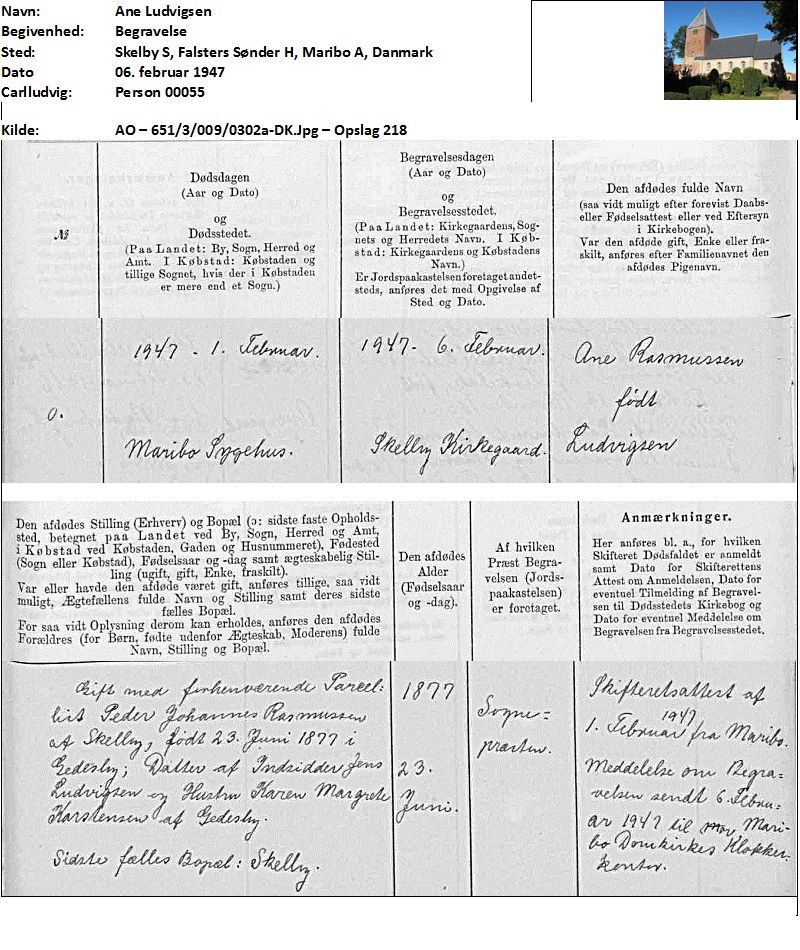 Navn: Ane Ludvigsen
Begivenhed: Begravelse
Sted: Skelby S, Falsters Sønder H, Maribo A, Danmark
Dato 06. februar 1947
Carlludvig: Person 00055
Kilde: AO – 651/3/009/0302a-DK.Jpg – Opslag 218
№
Dødsdagen
(Aar og Dato)
og
Dødsstedet.
(Paa Landet: By, Sogn, Herred og
Amt. I Købstad: Købstaden og
tillige Sognet, hvis der i Købstaden
er mere end et Sogn.)
Begravelsesdagen
(Aar og Dato)
og
Begravelsesstedet.
(Paa Landet: Kirkegaardens, Sog-
nets og Herredets Navn. I Køb-
stad: Kirkegaardens og Købstadens
Navn.)
Er Jordspaakastelsen foretaget andet-
steds, anføres det med Opgivelse af
Sted og Dato.
Den afdødes fulde Navn
(saa vidt muligt efter forevist Daabs-
eller Fødselsattest eller ved Eftersyn
i Kirkebogen).
Var den afdøde gift, Enke eller fra-
skilt, anføres efter Familienavnet den
afdødes Pigenavn.
0.
1947 - 1. Februar.
Maribo Sygehus.
1947 - 6. Februar.
Skelby Kirkegaard.
Ane Rasmussen
født
Ludvigsen
Den afdødes Stilling (Erhverv) og Bopæl (ɔ: sidste faste Opholds-
sted, betegnet paa Landet ved By, Sogn, Herred og Amt,
i Købstad ved Købstaden, Gaden og Husnummeret), Fødested
(Sogn eller Købstad), Fødselsaar og -dag samt ægteskabelig Stil-
ling (ugift, gift, Enke, fraskilt).
Var eller havde den afdøde været gift, anføres tillige, saa vidt
muligt, Ægtefællens fulde Navn og Stilling samt deres sidste
fælles Bopæl.
For saa vidt Oplysning derom kan erholdes, anføres den afdødes
Forældres (for Børn, fødte udenfor Ægteskab, Moderens) fulde
Navn, Stilling og Bopæl.
Den afdødes
Alder
(Fødselsaar
og -dag).
Af hvilken
Præst Begra-
velsen (Jords-
paakastelsen)
er foretaget.
Anmærkninger.
Her anføres bl. a., for hvilken
Skifteret Dødsfaldet er anmeldt
samt Dato for Skifterettens
Attest om Anmeldelsen, Dato for
eventuel Tilmelding af Begravel-
sen til Dødsstedets Kirkebog og
Dato for eventuel Meddelelse om
Begravelsen fra Begravelsesstedet.
Gift med forhenværende Parcel:
list Peder Johannes Rasmussen
af Skelby, født 23. Juni 1877 i
Gedesby; Datter af Indsidder Jens
Ludvigsen og Hustru Karen Margrete
Karstensen af Gedesby.
Sidste fælles Bopæl: Skelby.
1877
23.
Juni.
Sogne=
præsten.
Skifteretsattest af
1. Februar 1947 fra Maribo.
Meddelelse om Begra-
velsen sendt 6. Febru:
ar 1947 til Mari-
bo Domkirkes Klokker-
kontor.